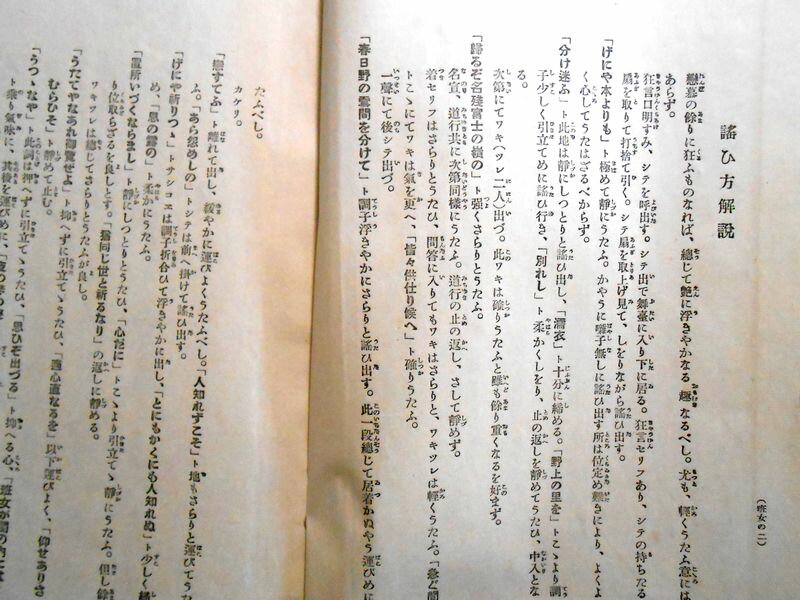 謠ひ方解説
(班女の二)
戀慕の餘りに狂ふものなれば、總じて艶に浮きやかなる趣なるべし。尤も、輕くうたふ意には
あらず。
狂言口明すみ、シテを呼出す。シテ出で舞臺に入り下に居る。狂言セリフあり、シテの持ちたる
扇を取りて打捨て引く。シテ扇を取上げ見て、しをりながら謠ひ出す。
「げにや本よりも」ト極めて靜にうたふ。かやうに囃子無しに謠ひ出す所は位定め難きにより、よくよ
く心してうたはざるべからず。
「分け迷ふ」ト此地は靜にしつとりと謠ひ出し、「濡衣」ト十分に締める。「野上の里を」トこゝより調
子少しく引立てめに謠ひ行き、「別れし」ト柔かくしをり、止の返しを靜めてうたひ、中入とな
る。
次第にてワキ(ツレ二人)出づ。此ワキは確りうたふと雖も餘り重くなるを好まず。
「歸るぞ名殘富士の嶺の」ト强くさらりとうたふ。
名宣、道行共に次第同樣にうたふ。道行の止の返し、さして靜めず。
着セリフはさらりとうたひ、問答に入りてもワキはさらりと、ワキツレは輕くうたふ。「急ぎ間
トこゝにてワキは氣を更へ、「皆々供仕り候へ」ト確りうたふ。
一聲にて後シテ出づ。
「春日野の雪間を分けて」ト調子浮きやかにさらりと謠ひ出す。此一段總じて居着かぬやう運びめに
たふべし。
カケリ。
「戀すてふ」ト離れて出し、緩やかに運びよくうたふべし。「人知れずこそ」ト地もさらりと運びてうた
ふ。「あら怨めしの」トシテは前へ掛けて謠ひ出す。
「げにや祈りつゝ」トサシヱは調子折合ひて浮きやかに出し、「とにもかくにも人知れぬ」ト少しく
め、「思の露の」ト柔かにうたふ。
「置所いづくならまし」ト靜にしつとりとうたひ、「心だに」トこゝより引立てゝ靜にうたふ。但し餘
り位取らざるを良しとす。「猶同じ世と祈るなり」の返しに靜める。
ワキツレは總じてさらりとうたふが良し。
「うたてやなあれ御覽ぜよ」ト抑へずに引立てゝうたひ、「過心直なるを」以下運びよく、「仰せありさ
むらひそ」ト靜めて止む。
「うつゝなや」ト此詞は押へずに引立てゝうたひ、「思ひぞ出づる」ト抑へる心、「班女が閨の内には
ト乘り氣味に、其後を運びめに、